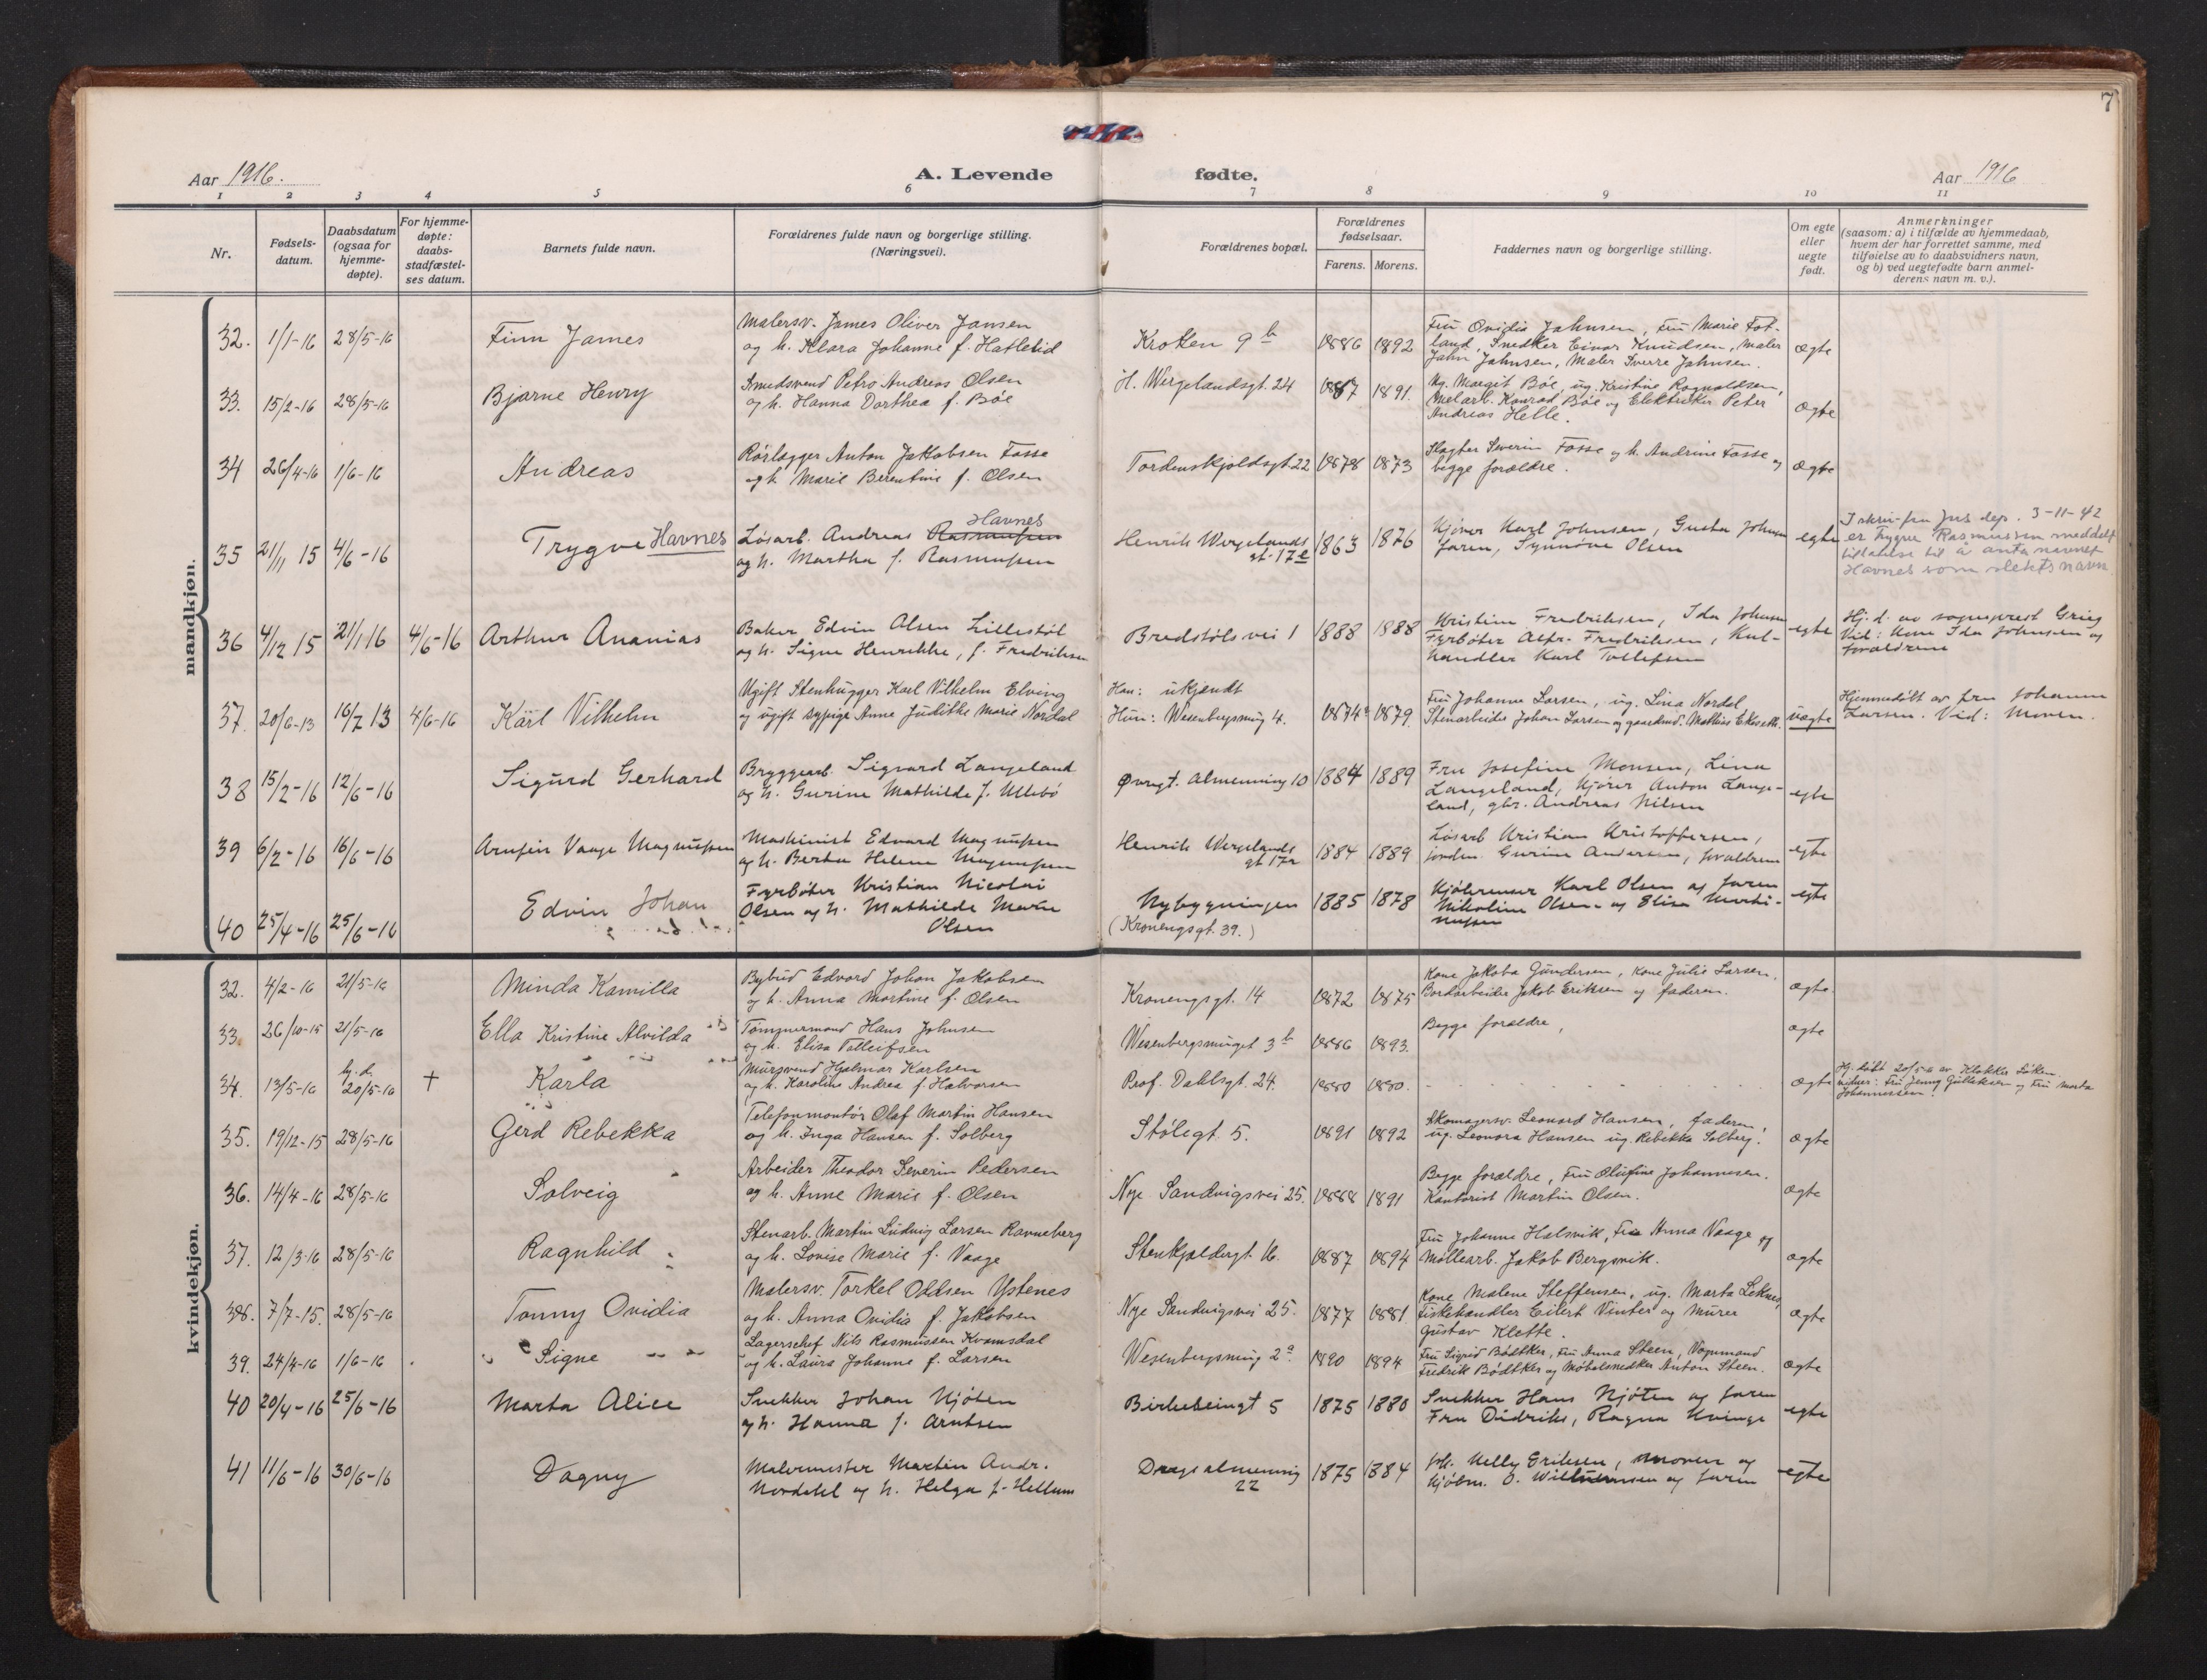 7
Aar 1916.
A. Levende fødte.
Aar 1916
1 2 3 4 5 6 7 8 9 10 11
Nr.
Fødsels-
datum.
Daabsdatum
(ogsaa for
hjemme-
døpte).
For hjemme-
døpte:
daabs-
stadfæstel-
ses datum.
Barnets fulde navn.
Forældrenes fulde navn og borgerlige stilling.
(Næringsvei).
Forældrenes bopæl.
Forældrenes
fødselsaar.
Farens. Morens.
Faddernes navn og borgerlige stilling.
Om egte
eller
uegte
født.
Anmerkninger
(saasom: a) i tilfælde av hjemmedaab,
hvem der har forrettet samme, med
tilføielse av to daabsvidners navn,
og b) ved uegtefødte barn anmel-
derens navn m. v.).
mandkjøn.
32. 1/1-16 28/5-16 Finn James
Malersv. James Oliver Jansen
og h. Klara Johanne f. Hatletid
Kroken 9 b 1886 1892
Fru Ovidia Jahnsen, Fru Marie Fot-
land, Snedker Einar Knudsen, Maler
Jahn Jahnsen, Maler Sverre Jahnsen.
ægte
33. 15/2-16 28/5-16 Bjarne Henry
Smedsvend Petro Andreas Olsen
og h. Hanna Dorthea f. Bøe
H. Wergelandsgt. 24 1887 1891.
Ug. Margit Bøe, ug. Kristine Ragnvaldsen,
Melarb. Konrad Bøe og Elektriker Peter
Andreas Helle.
ægte
34 26/4-16 1/6-16 Andreas
Rørlægger Anton Jakobsen Fosse
og h. Marie Berentine f. Olsen
Tordenskjoldsgt. 22 1878 1873
Slagter Severin Fosse og h. Andrine Fosse og
begge forældre.
ægte
35 21/11 15 4/6-16 Trygve Havnes
Havnes
Løsarb. Andreas Rasmussen
og h. Martha f. Rasmussen
Henrik Wergelands
gt. 17e 1863 1876
Kjører Karl Johnsen, Gusta Johnsen
faren, Synnøve Olsen
egte
I skriv fra Jus dep. 3-11-42
er Trygve Rasmussen meddelt
tillatelse til å anta navnet
Havnes som slektsnavn
36 4/12 15 21/1 16 4/6-16 Arthur Ananias
Baker Edvin Olsen Lillestøl
og h. Signe Henrikke, f. Fredriksen
Bredstølsvei 1 1888 1888
Kristine Fredriksen, Ida Johnsen
Fyrbøter Alfr. Fredriksen, Kul-
handler Karl Tollefsen
egte
Hj. d. av sogneprest Grieg
Vid: Kone Ida Johnsen og
forældrene
37. 20/6-13 16/7 13 4/6-16 Karl Vilhelm
Ugift Stenhugger Karl Vilhelm Elving
og ugift sypige Anne Judithe Marie Nordal
Han: ukjendt
Hun: Wesenbergsmug 4. 1874 1879.
Fru Johanne Larsen, ug. Lina Nordal,
Stenarbeider Johan Larsen og gaardmd. Mathias Ekeseth.
uægte
Hjemmedøbt av fru Johanne
Larsen. Vid: Moren.
38 15/2-16 12/6-16 Sigurd Gerhard
Bryggearb. Sigvard Langeland
og h. Gurine Mathilde f. Ullebø
Øvregt. Almenning 10 1884 1889
Fru Josefine Monsen, Lina
Langeland, Kjører Anton Lange-
land, gbr. Andreas Nilsen
egte
39 6/2-16 16/6-16 Arnfin Vaage Magnussen
Maskinist Edvard Magnussen
og h. Berta Helene Magnussen
Henrik Wergelands
gt 17a 1884 1889
Løsarb Kristian Kristoffersen,
jordm. Gurine Andersen, forældrene
egte
40 25/4-16 25/6-16 Edvin Johan
Fyrbøter Kristian Nicolai
Olsen og h. Mathilde Marie
Olsen
Nybygningen
(Kronengsgt. 39.) 1885 1878
Karl Olsen og faren
Nikoline Olsen og Elise Marti-
nussen
egte
kvindekjøn.
32. 4/2-16 21/5-16 Minda Kamilla
Bybud Edvard Johan Jakobsen
og h. Anna Martine f. Olsen
Kronengsgt. 14 1872 1875
Kone Jakoba Gundersen, Kone Julie Larsen.
Bordarbeider Jakob Eriksen og faderen.
ægte
33. 26/10-15 21/5-16 Ella Kristine Alvilda
Tømmermand Hans Johnsen
og h. Elisa Tolleifsen
Wesenbergsmuget 3 b 1886 1893.
Begge forældre,
ægte
34. 13/5-16 hj. d.
20/5-16 † Karla
Mursvend Hjalmar Karlsen
og h. Karoline Andrea f. Halvorsen
Prof. Dahlsgt. 24. 1880 1880.
ægte
Hj. døbt 20/5-16 av Klokker Løken.
vidner: Fru Jenny Gulliksen og Fru Marta
Johannessen.
35. 19/12-15 28/5-16 Gerd Rebekka
Telefonmontør Olaf Martin Hansen
og h. Inga Hansen f. Solberg
Stølegt. 5. 1891 1892
Skomagersv. Leonard Hansen, faderen,
ug. Leonora Hansen ug. Rebekka Solberg.
ægte
36. 14/4-16 28/5-16 Solveig
Arbeider Theodor Severin Pedersen
og h. Anne Marie f. Olsen
Nye Sandvigsvei 25. 1888 1891
Begge forældre, Fru Olufine Johannesen.
Kontorist Martin Olsen.
ægte
37. 12/3-16 28/5-16 Ragnhild
Stenarb. Martin Ludvig Larsen Ravneberg
og h. Lovise Marie f. Vaage
Stenkjeldergt. 16. 1887 1894
Fru Johanne Halsvik, Fru Anna Vaage og
Møllearb. Jakob Bergsvik.
ægte
38. 7/7-15. 28/5-16 Tonny Ovidia
Malersv. Torkel Oddsen Ystenes
og h. Anna Ovidia f. Jakobsen
Nye Sandvigsvei 25. 1877 1881
Kone Malene Steffensen, ug. Marta Leknes,
Fiskehandler Eilert Vinter og Murer
Gustav Klette.
ægte
39. 24/4-16 1/6-16 Signe
Lagerschef Nils Rasmussen Kvamsdal
og h. Laura Johanne f. Larsen
Wesenbergsmug 2 a. 1890 1894
Fru Sigrid Bødtker, Fru Anna Steen, Vognmand
Fredrik Bødtker og Møbelsnedker Anton Steen.
ægte
40 20/4-16 25/6-16 Marta Alice
Snekker Johan Njøten
og h. Hanna f. Arntsen
Birkebeinergt 5 1875 1880
Snekker Hans Njøten og faren
Fru Didriks, Ragna Kvinge
egte
41 11/6-16 30/6-16 Dagny
Malermester Martin Andr.
Nordahl og h. Helga f. Hellum
Dregsalmenning
22 1875 1884
frk. Nelly Eriksen, moren og
kjøbm. O. Wilhelmsen og faren
egte